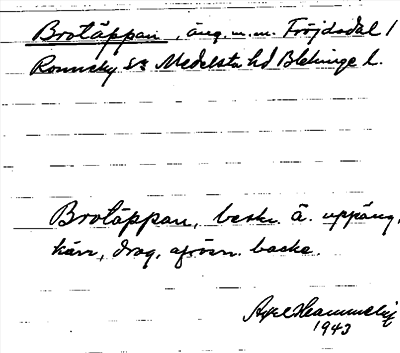 Brotäppan, äng m.m. Fröjdsdal 1
Ronneby sn Medelsta hd Blekinge l.
Brotäppan, beskr. ä. uppäng,
kärr, drog, backe.
Axel
1943